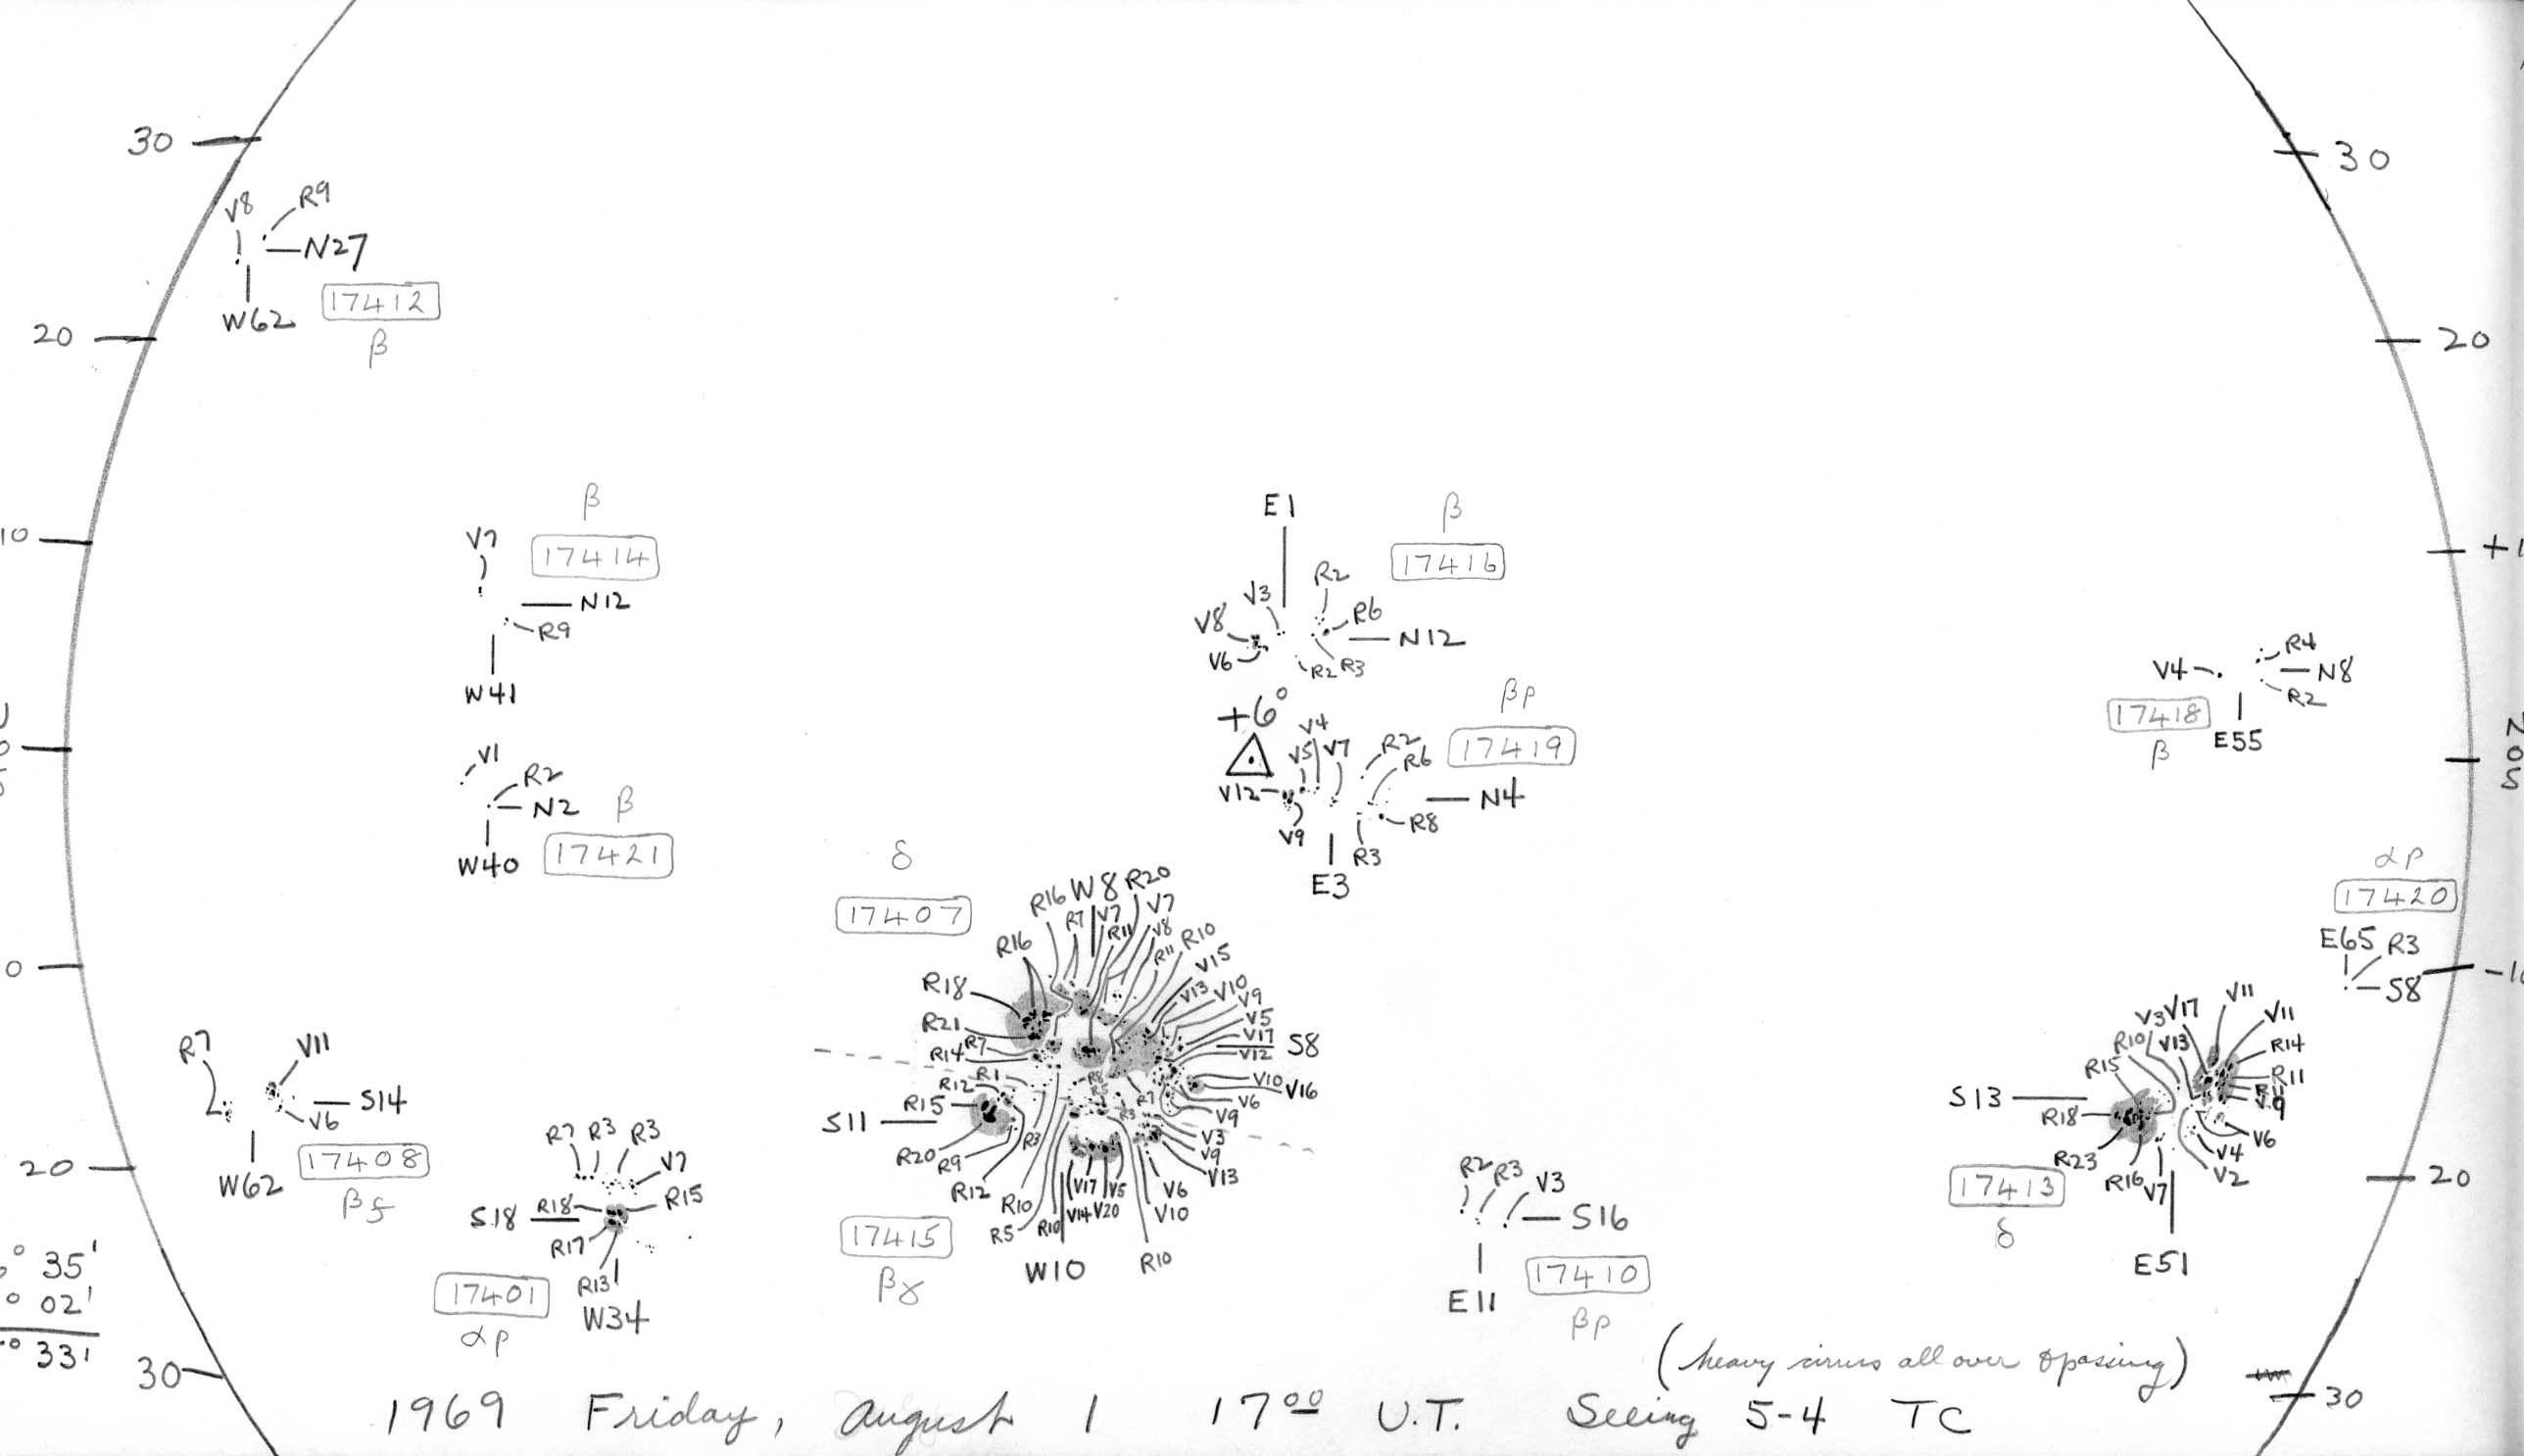 30
30
V8
R9
N27
W62
17412
β
20
20
β
17414
V7
N12
R9
W41
E1
β
17416
R2
V3
R6
V8
N12
V6
R2
R3
10
+1
R4
V4
N8
R2
17418
E55
β
N
0
S
+6°
βp
V4
V5
V7
R2
R6
17419
V12
N4
V9
R8
R3
E3
V1
R2
N2
β
W40
17421
δ
17407
R16
W8
R20
R7
V7
V7
R11
V8
R16
R11
R10
V15
R18
V13
V10
V9
V5
R21
V17
S8
R14
R7
V12
R12
R1
R8
V10
V16
R15
V6
S11
R3
R7
V9
V3
R20
R3
V9
R9
V13
R12
V17
V5
V6
R10
V14
V20
V10
R5
R10
17415
W10
R10
βγ
αp
17420
E65
R3
S8
0
-10
R7
V11
S14
V6
17408
W62
βf
20
20
R7
R3
R3
V7
S18
R18
R15
R17
R13
17401
W34
αp
R2
R3
V3
S16
17410
E11
βp
V3
V17
V11
V11
R10
V13
R14
R15
R11
R11
S13
V9
R18
V6
R23
V4
R16
V7
V2
17413
δ
E51
° 35'
° 02'
° 33'
30
30
(heavy cirrus all over & passing)
1969 Friday, August 1 17⁰⁰ U.T. Seeing 5-4 TC